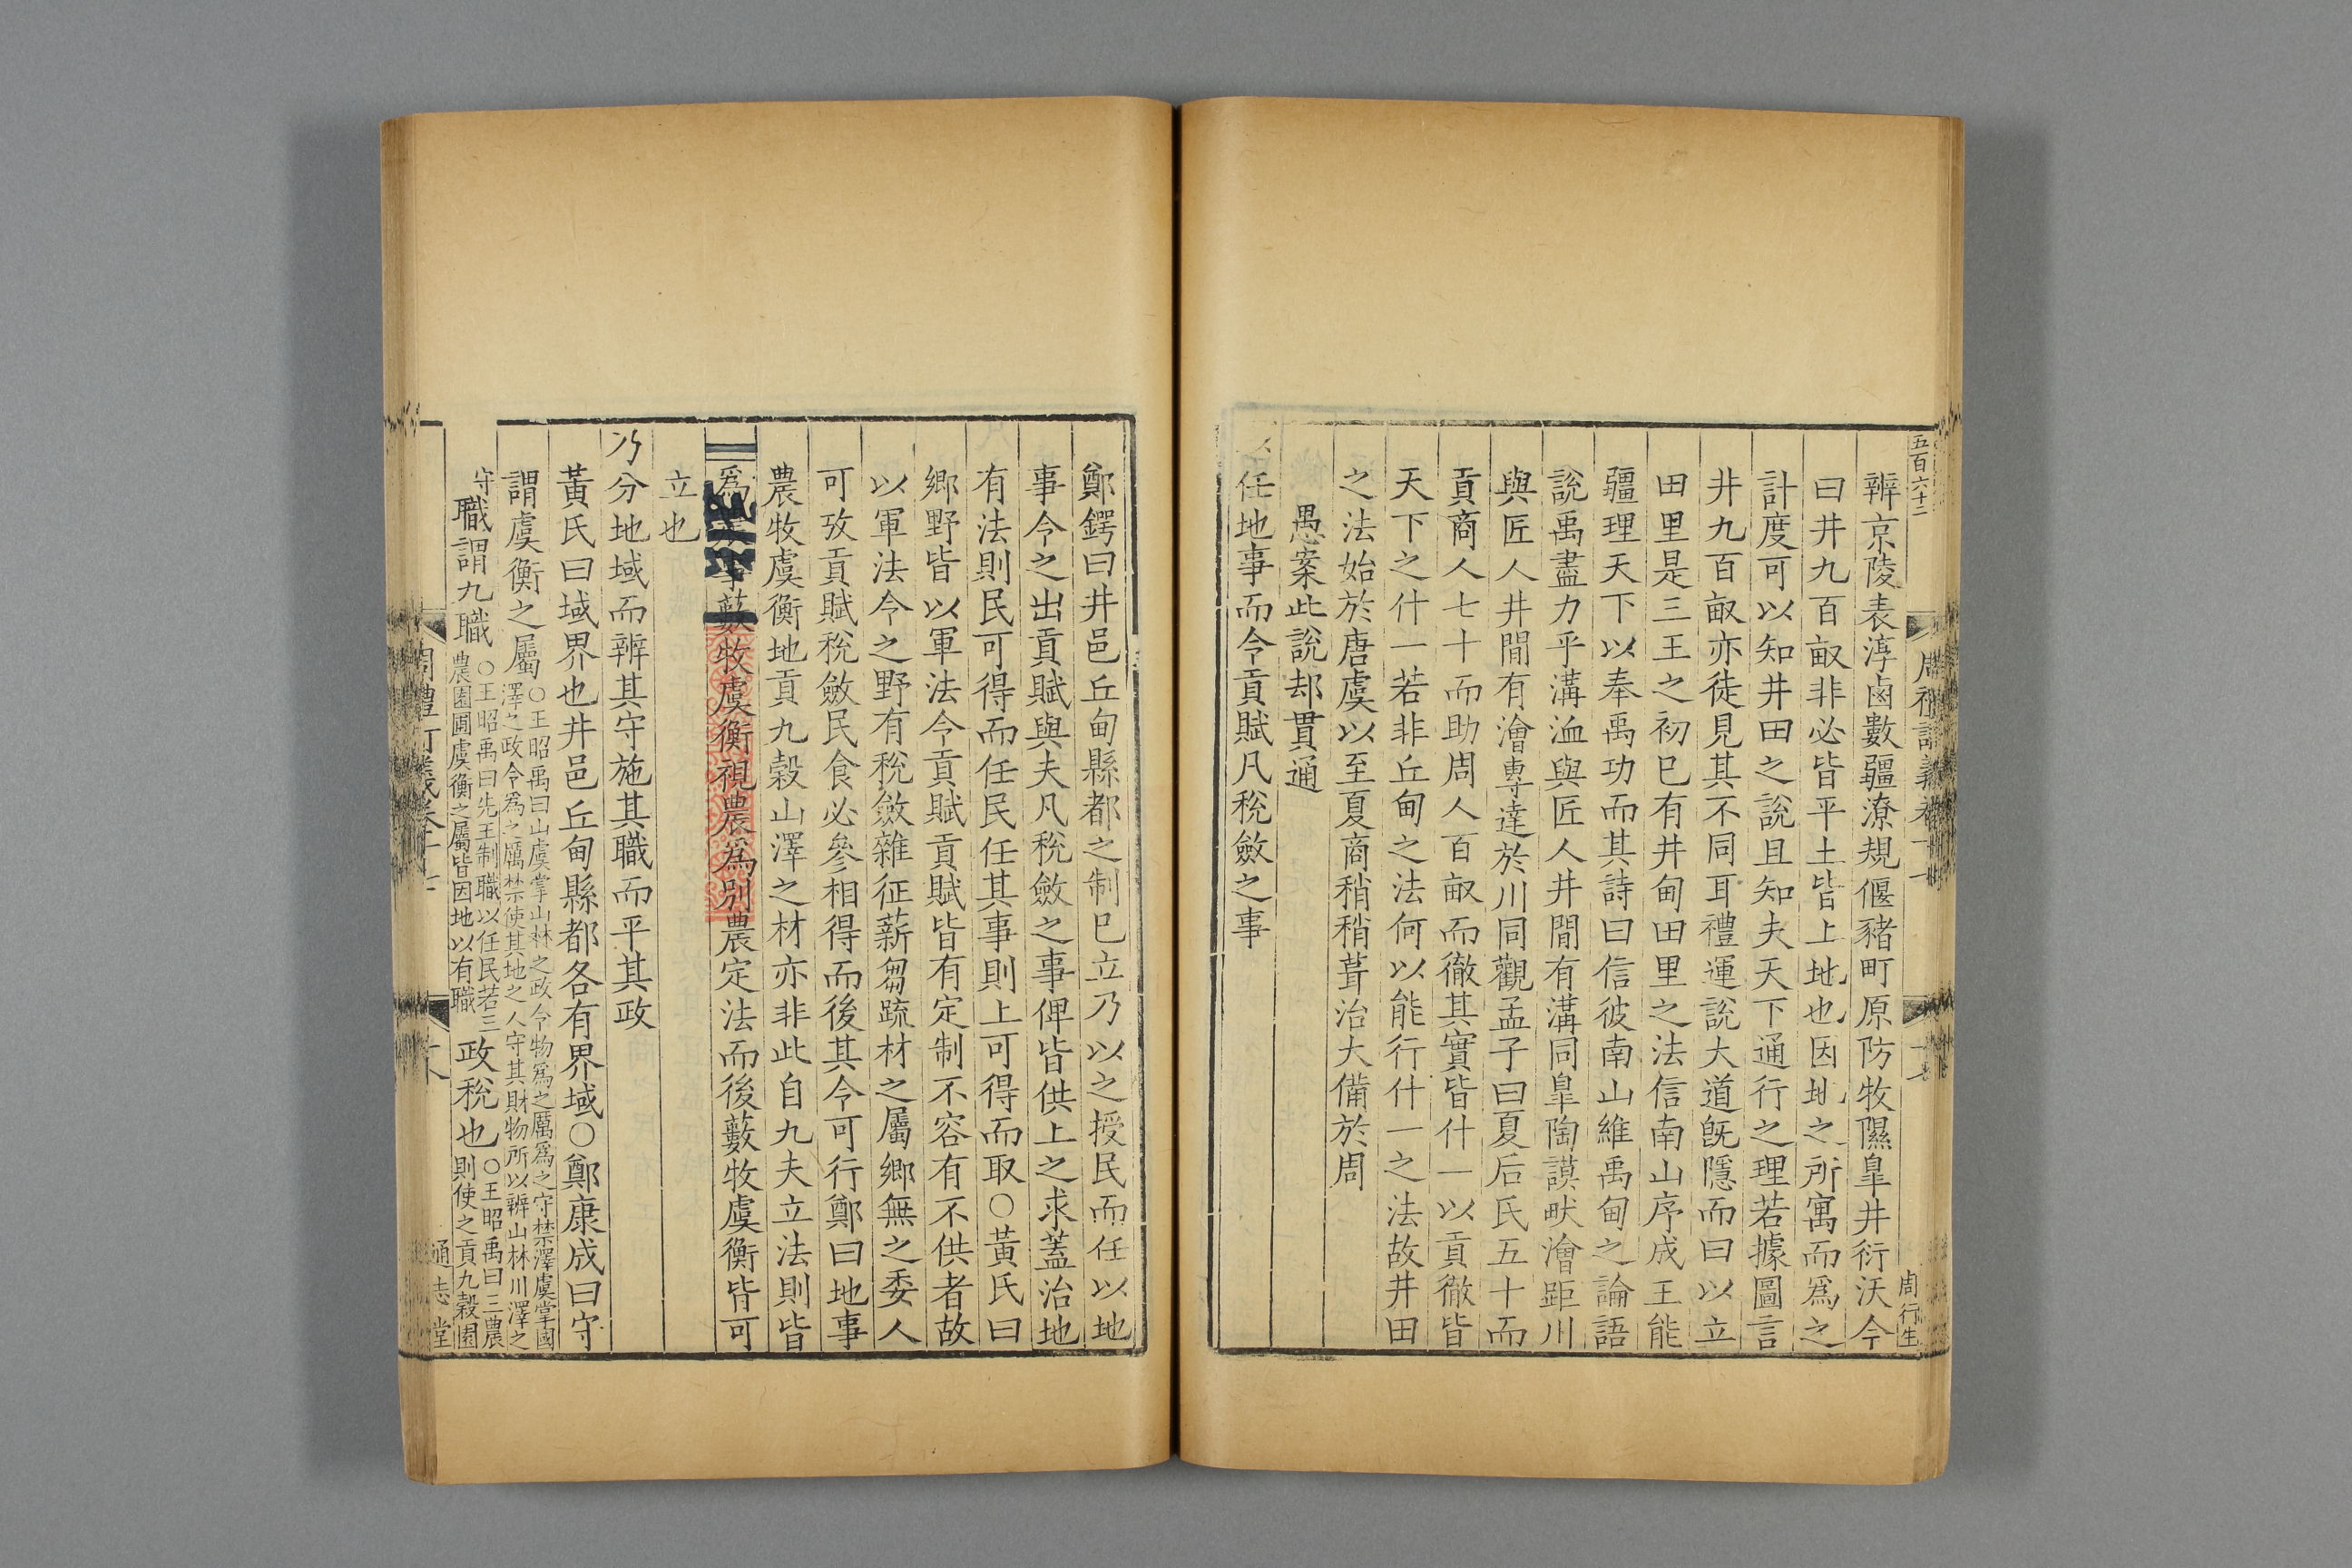 五百六十二
周行生
辨京陵表淳鹵數疆潦規偃豬町原防牧隰皐井衍沃今
曰井九百畝非必皆平土皆上地也因地之所寓而爲之
計度可以知井田之說且知夫天下通行之理若據圖言
井九百畝亦徒見其不同耳禮運說大道旣隱而曰以立
田里是三王之初已有井甸田里之法信南山序成王能
疆理天下以奉禹功而其詩曰信彼南山維禹甸之論語
說禹盡力乎溝洫與匠人井間有溝同皐陶謨畎澮距川
與匠人井間有澮專達於川同觀孟子曰夏后氏五十而
貢商人七十而助周人百畝而徹其實皆什一以貢徹皆
天下之什一若非丘甸之法何以能行什一之法故井田
之法始於唐虞以至夏商稍稍葺治大備於周
愚案此說却貫通
以任地事而令貢賦凡稅斂之事
鄭鍔曰井邑丘甸縣都之制已立乃以之授民而任以地
事令之出貢賦與夫凡稅斂之事俾皆供上之求蓋治地
有法則民可得而任民任其事則上可得而取○黃氏曰
鄉野皆以軍法令貢賦貢賦皆有定制不容有不供者故
以軍法令之野有稅斂雜征薪芻疏材之屬鄉無之委人
可攷貢賦稅斂民食必參相得而後其令可行鄭曰地事
農牧虞衡地貢九穀山澤之材亦非此自九夫立法則皆
爲事藪牧虞衡視農爲別農定法而後藪牧虞衡皆可
立也
乃分地域而辨其守施其職而平其政
黃氏曰域界也井邑丘甸縣都各有界域○鄭康成曰守
謂虞衡之屬○王昭禹曰山虞掌山林之政令物爲之厲爲之守禁澤虞掌國
澤之政令爲之厲禁使其地之人守其財物所以辨山林川澤之
守職謂九職○王昭禹曰先王制職以任民若三
農園圃虞衡之屬皆因地以有職政稅也○王昭禹曰三農
則使之貢九穀園
通志堂